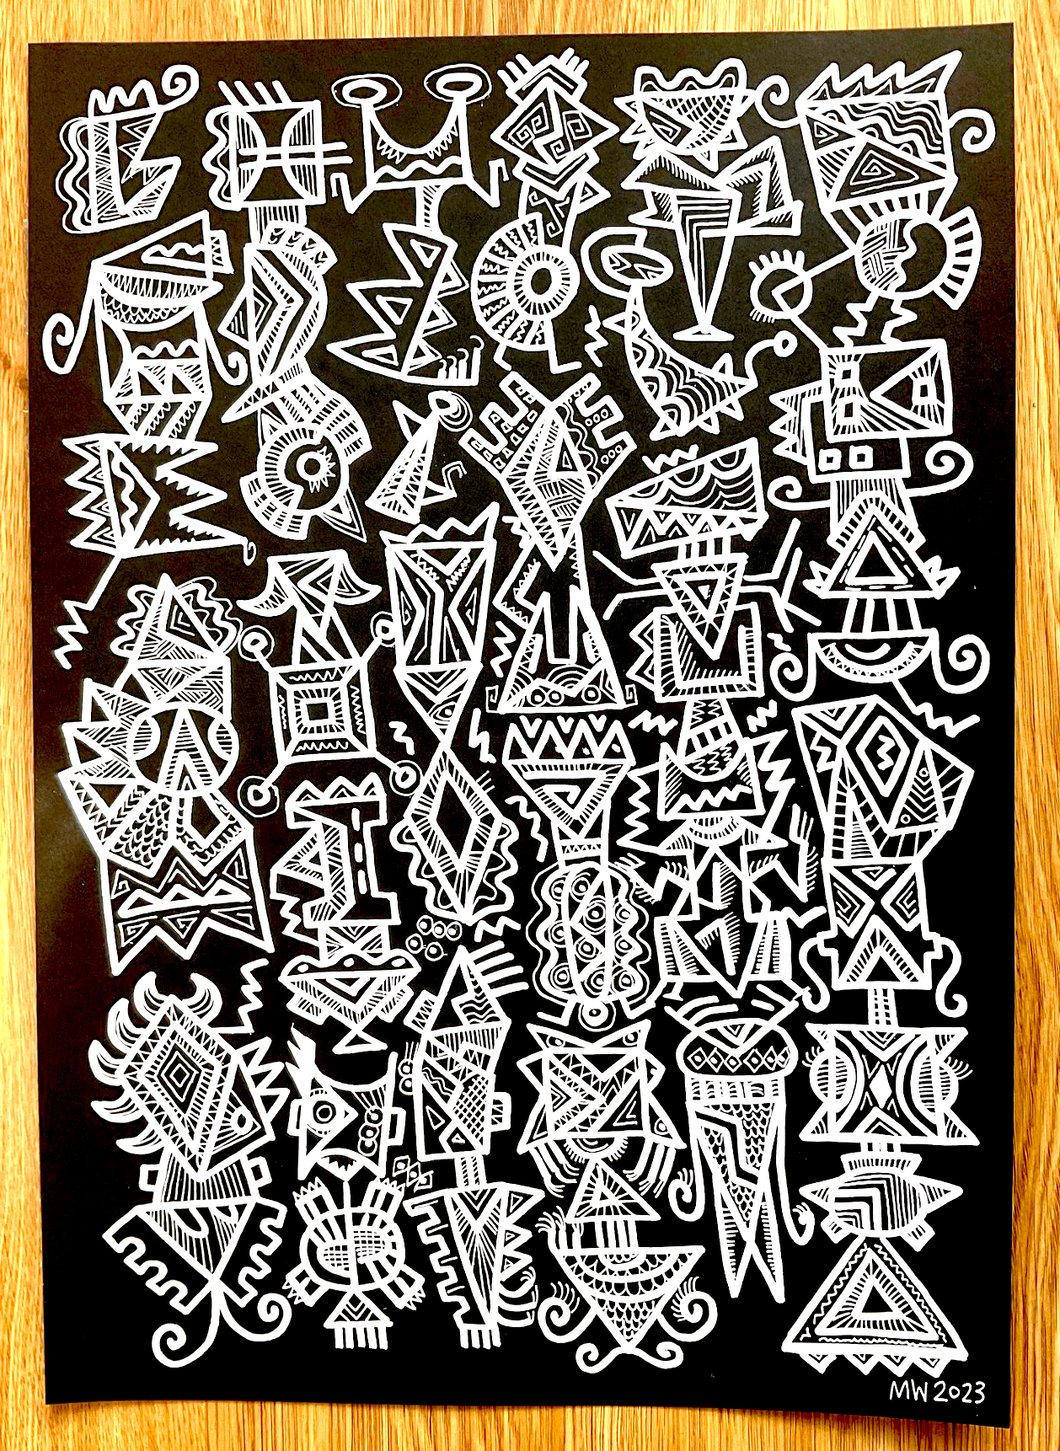 MW 2023